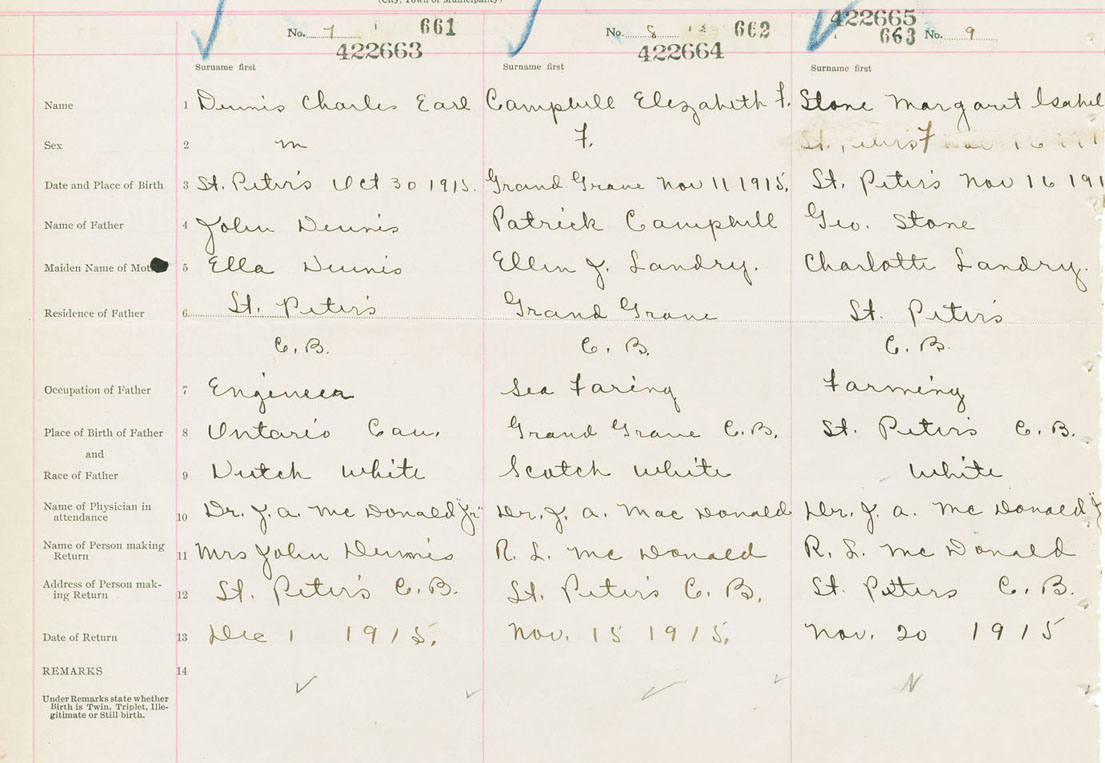 (City, Town or Municipality)
No. 7 661 No. 8 662 422665
422663 422664 663 No. 9
Surname first Surname first Surname first
Name 1 Dennis Charles Earl Campbell Elezabeth F. Stone Margaret Isabel
Sex 2 m F. F
Date and Place of Birth 3 St. Peter's Oct 30 1915. Grand Grave Nov 11 1915. St. Peter's Nov 16 191
Name of Father 4 John Dennis Patrick Campbell Geo. Stone
Maiden Name of Mot 5 Ella Dennis Ellen J. Landry. Charlotte Landry.
Residence of Father 6 St. Peter's Grand Grave St. Peter's
C. B. C. B. C. B.
Occupation of Father 7 Engineer Sea Faring Farming
Place of Birth of Father 8 Ontario Can. Grand Grave C. B. St. Peter's C. B.
and
Race of Father 9 Dutch White Scotch White White
Name of Physician in
attendance 10 Dr. J. A. Mc Donald "Jr" Dr. J. A. Mac Donald Dr. J. A. Mc Donald "J
Name of Person making
Return 11 Mrs John Dennis R. L. Mc Donald R. L. Mc Donald
Address of Person mak-
ing Return 12 St. Peter's C. B. St. Peter's C. B. St. Peters C. B.
Date of Return 13 Dec 1 1915. Nov. 15 1915. Nov. 20 1915
REMARKS 14
Under Remarks state whether
Birth is Twin, Triplet, Ille-
gitimate or Still birth.
N